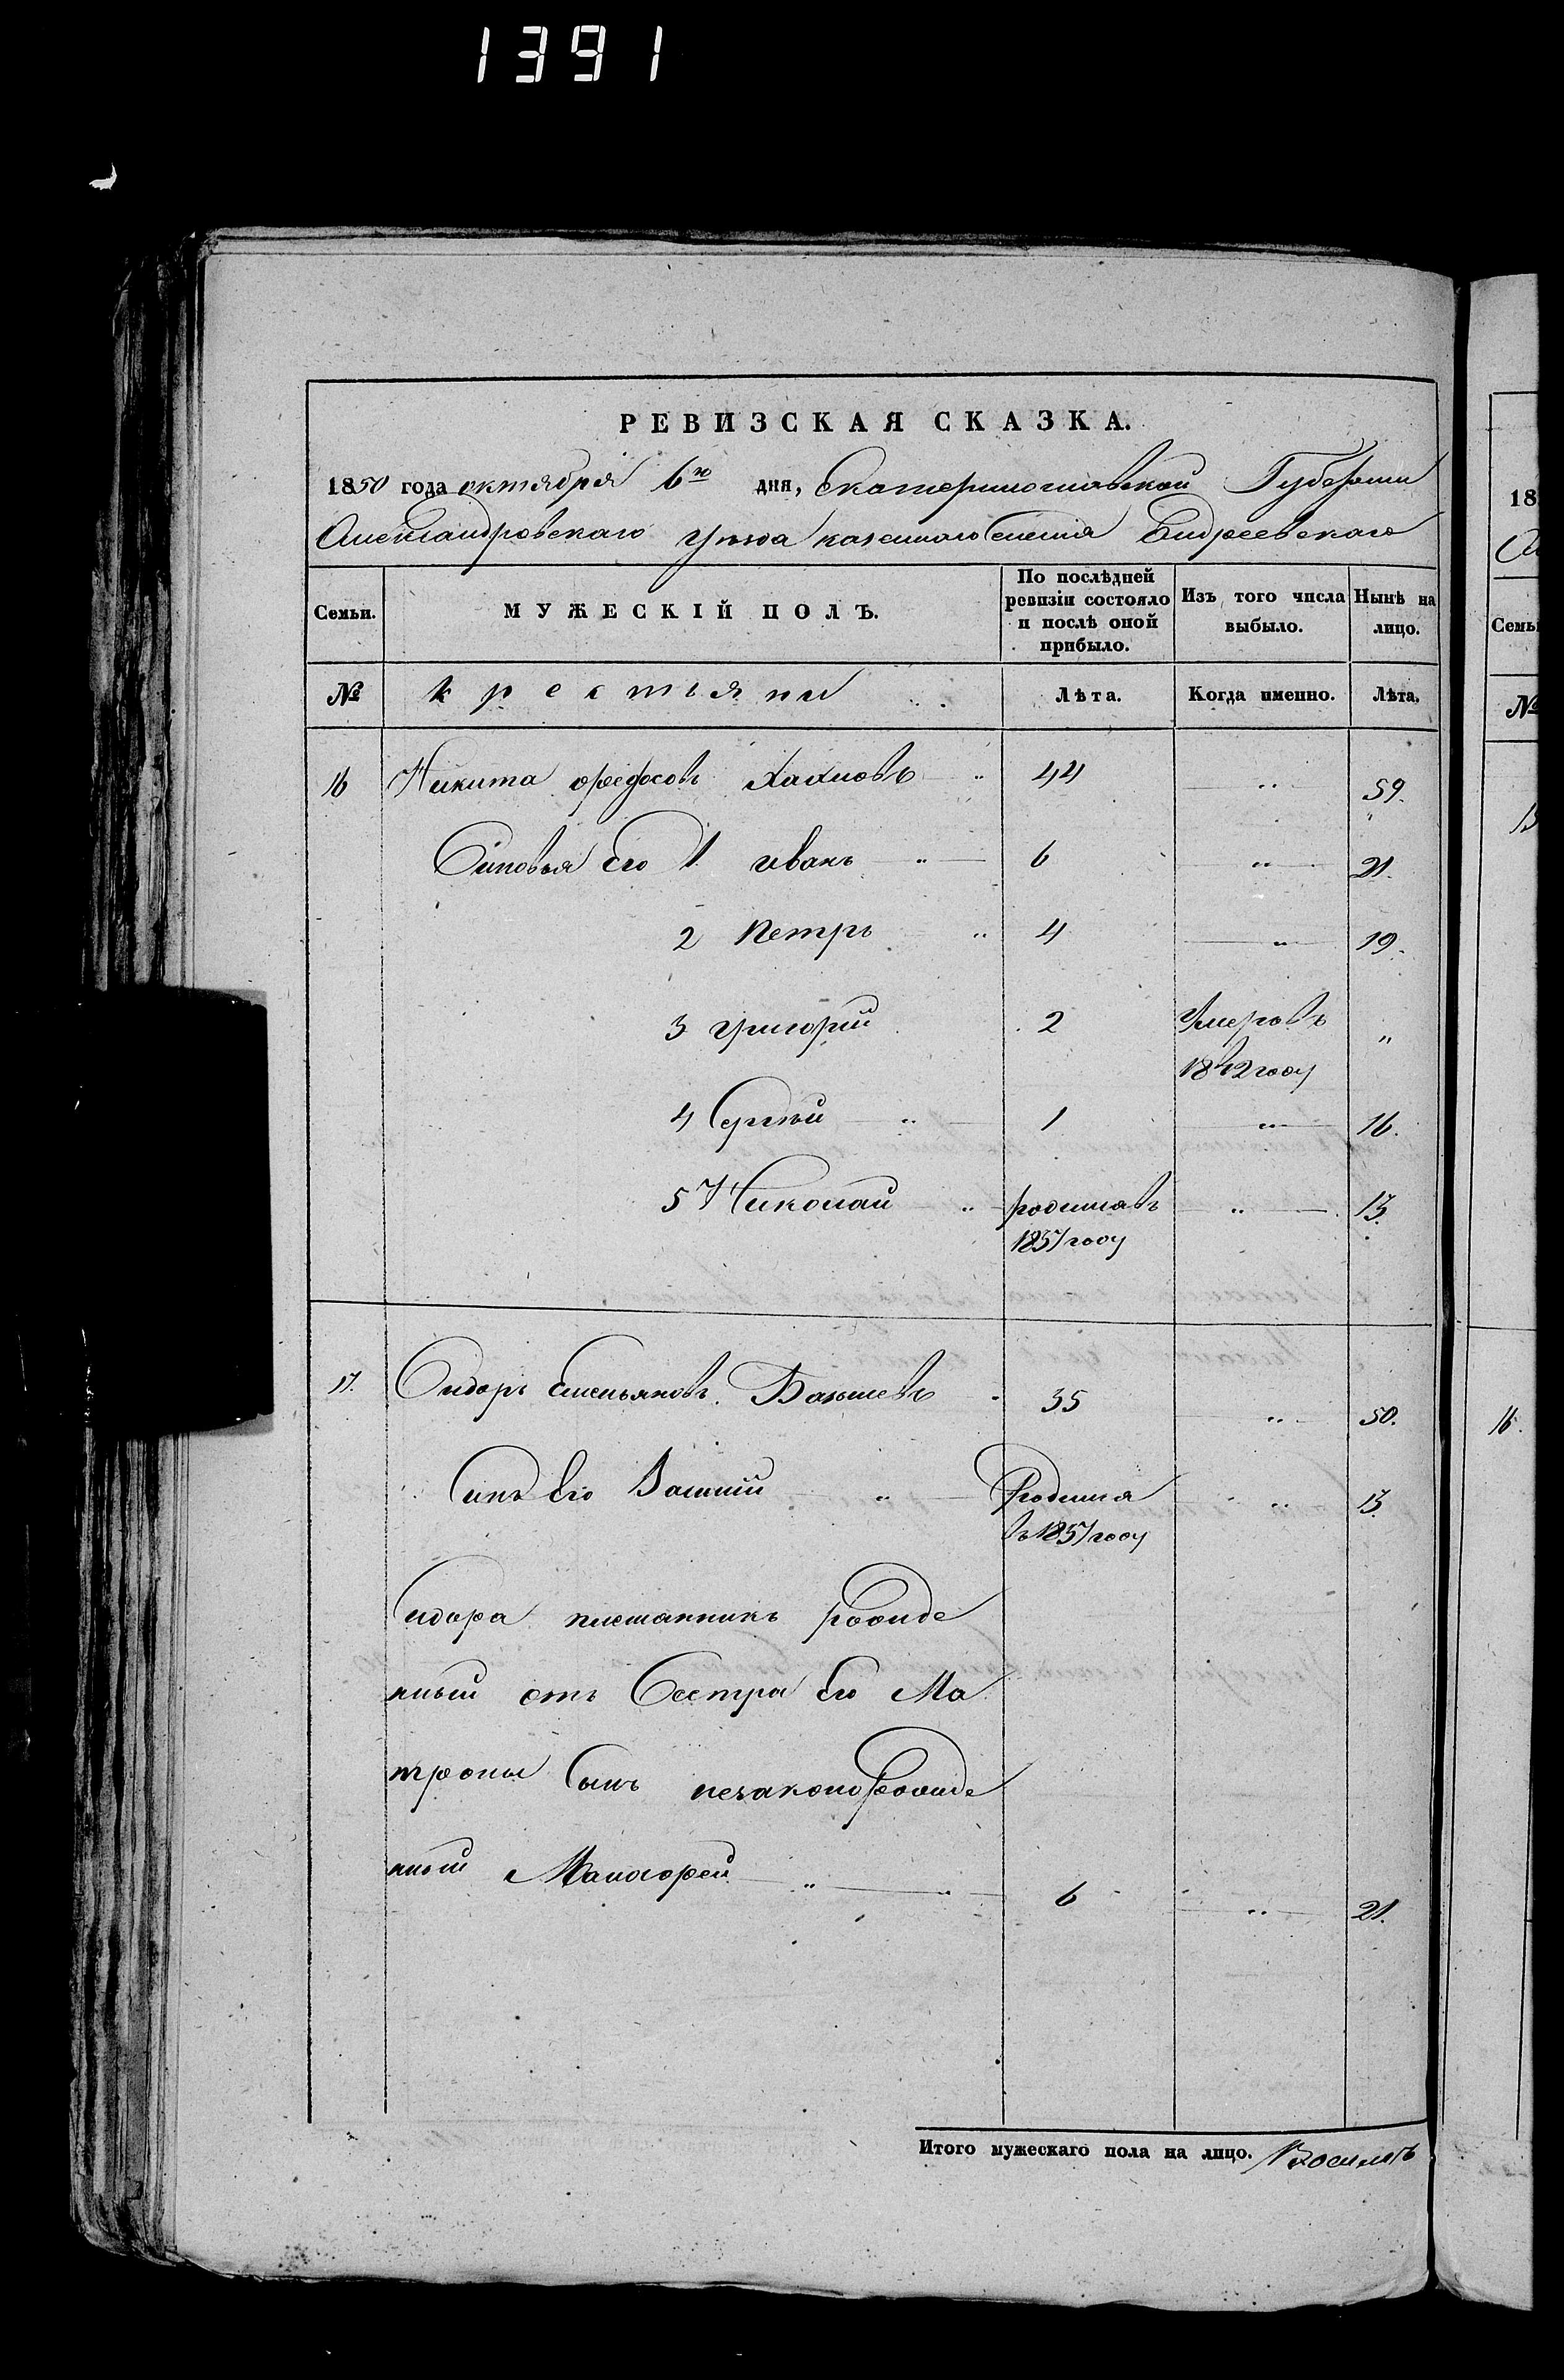 1391
РЕВИЗСКАЯ СКАЗКА.
1850 года октября 6го дня, Екатеринославской Губернии
Александровскаго уезда казеннаго Селения Андреевскаго
Семьи. МУЖЕСКІЙ ПОЛЪ. По послѣдней ревизіи состояло и послѣ оной прибыло. Изъ того числа выбыло. Нынѣ на лицо.
№ крестьяны Лѣта. Когда именно. Лѣта.
16 Никита федосовъ 44 " 59.
Синовья Его 1 иванъ " 6 " 21.
2 Петръ " 4 " 19.
3 григорий 2 Умеръ въ "
1842 году
4 Сергѣй " 1 " 16.
5 Николай " родился въ " 13.
1837 году
17. Сидоръ Емельяновъ 35 " 50.
Синъ Его Василий " Родился " 13.
въ 1837 году
Сидора племянникъ рожде
нный отъ Сестри Его Ма
троны Сынъ незаконорожде
нный " 6 " 21.
Итого мужескаго пола на лицо. Восемъ
18
Семьи
№
16.